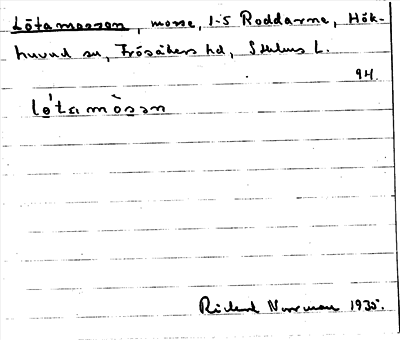 Lötamossen, mosse, 1-5 Roddarne, Hök-
huvud sn, Frösåkers hd, Sthlms L.
94.
lø´ta mòsən
Rickard Norrman 1935.